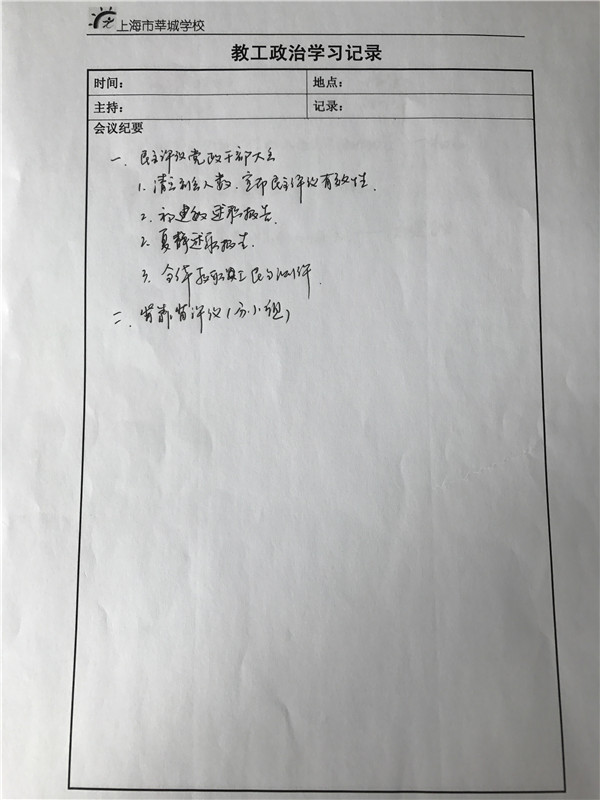 上海市莘城学校
教工政治学习记录
时间： 地点：
主持： 记录：
会议纪要
一、民主评议党政干部大会
1. 清点到会人数，宣布民主评议有效性.
2. 述职报告.
2. 夏静述职报告.
3. 全体教职员工民主测评.
二、评议（分小组）